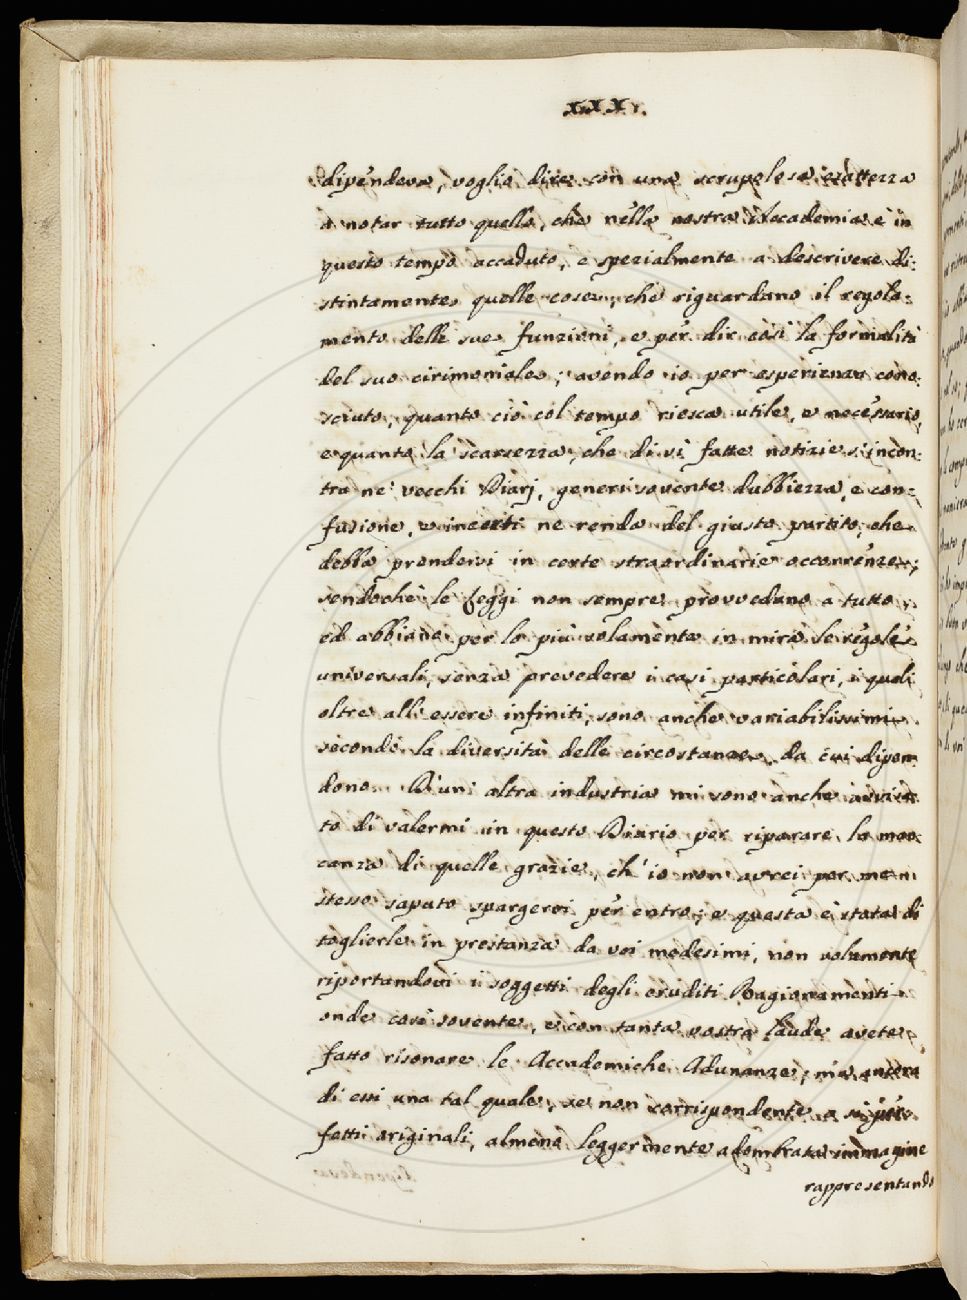 XXXX.
dipendeva, voglio dire con una scrupolosa esattezza
a notar tutto quello, che nella nostra Accademia è in
questo tempo accaduto, e spezialmente a descrivere di-
stintamente quelle cose, che riguardano il regola-
mento delle sue funzioni, e per dir così la formalità
del suo cirimoniale; avendo io per esperienza cono-
sciuto, quanto ciò col tempo riesca utile, e necessario,
e quanto la scarsezza, che di sì fatte notizie s'incon-
tra ne' vecchi Diarj, generi sovente dubbiezza, e con-
fusione, e incerti ne renda del giusto partito, che
debba prendersi in certe straordinarie occorrenze;
sendochè le Leggi non sempre provvedano a tutto,
ed abbiano per lo più solamente in mira le regole
universali, senza prevedere i casi particolari, i quali
oltre all'essere infiniti, sono anche variabilissimi
secondo la diversità delle circostanze, da cui dipen-
dono. D'un'altra industria mi sono anche avvisa-
to di valermi in questo Diario per riparare la man-
canza di quelle grazie, ch'io non avrei per me
stesso saputo spargervi per entro; e questa è stata di
toglierle in prestanza da voi medesimi, non solamente
riportandovi i soggetti degli eruditi Ragionamenti
onde così sovente, e con tanta vostra laude avete
fatto risonare le Accademiche Adunanze; ma ancora
di essi una tal quale, se non corrispondente a sì per-
fetti originali, almeno leggermente adombrata immagine
rappresentando